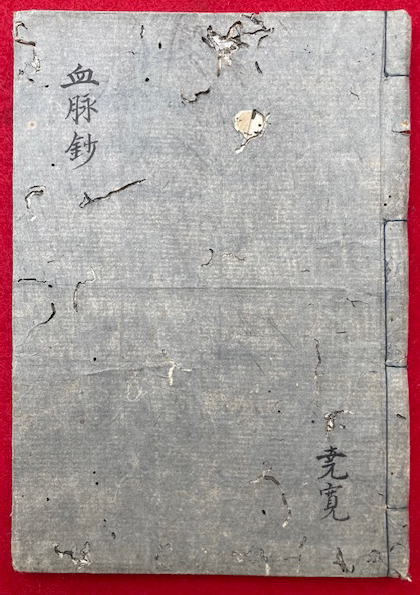 血脉鈔
尭寛